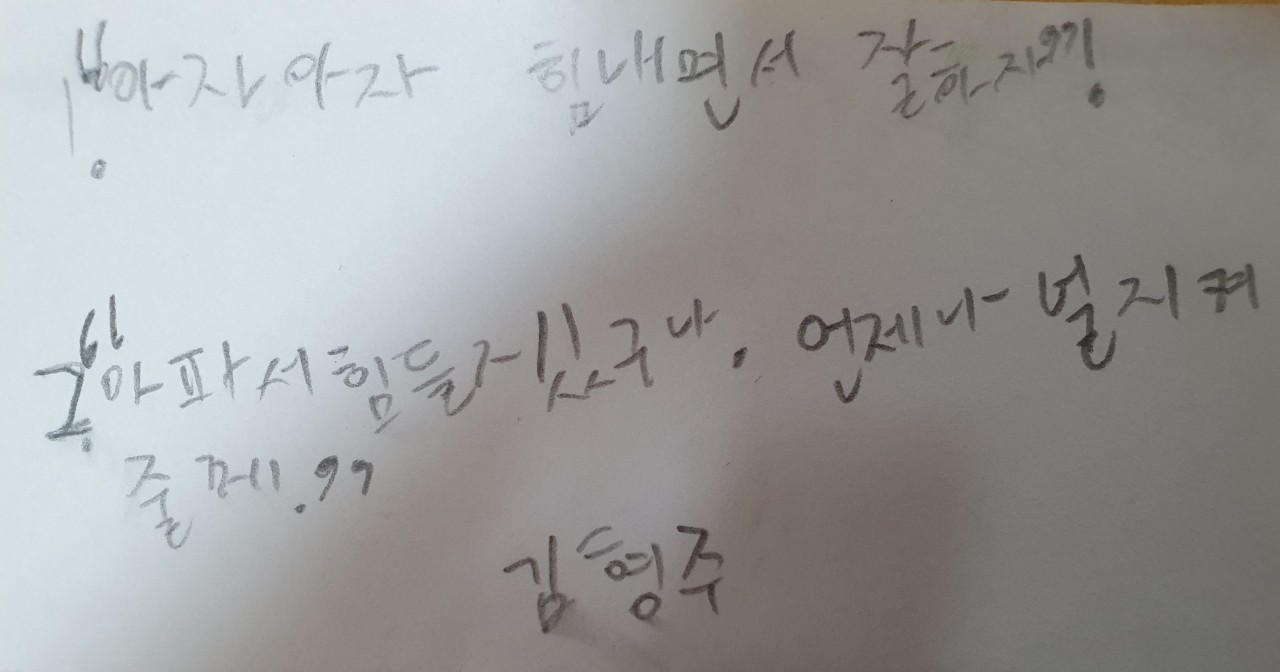 1. "아자 아자 힘내면서 잘하지"!
2. "아파서 힘들자있구나. 언제나 널 지켜
줄께."
김형주